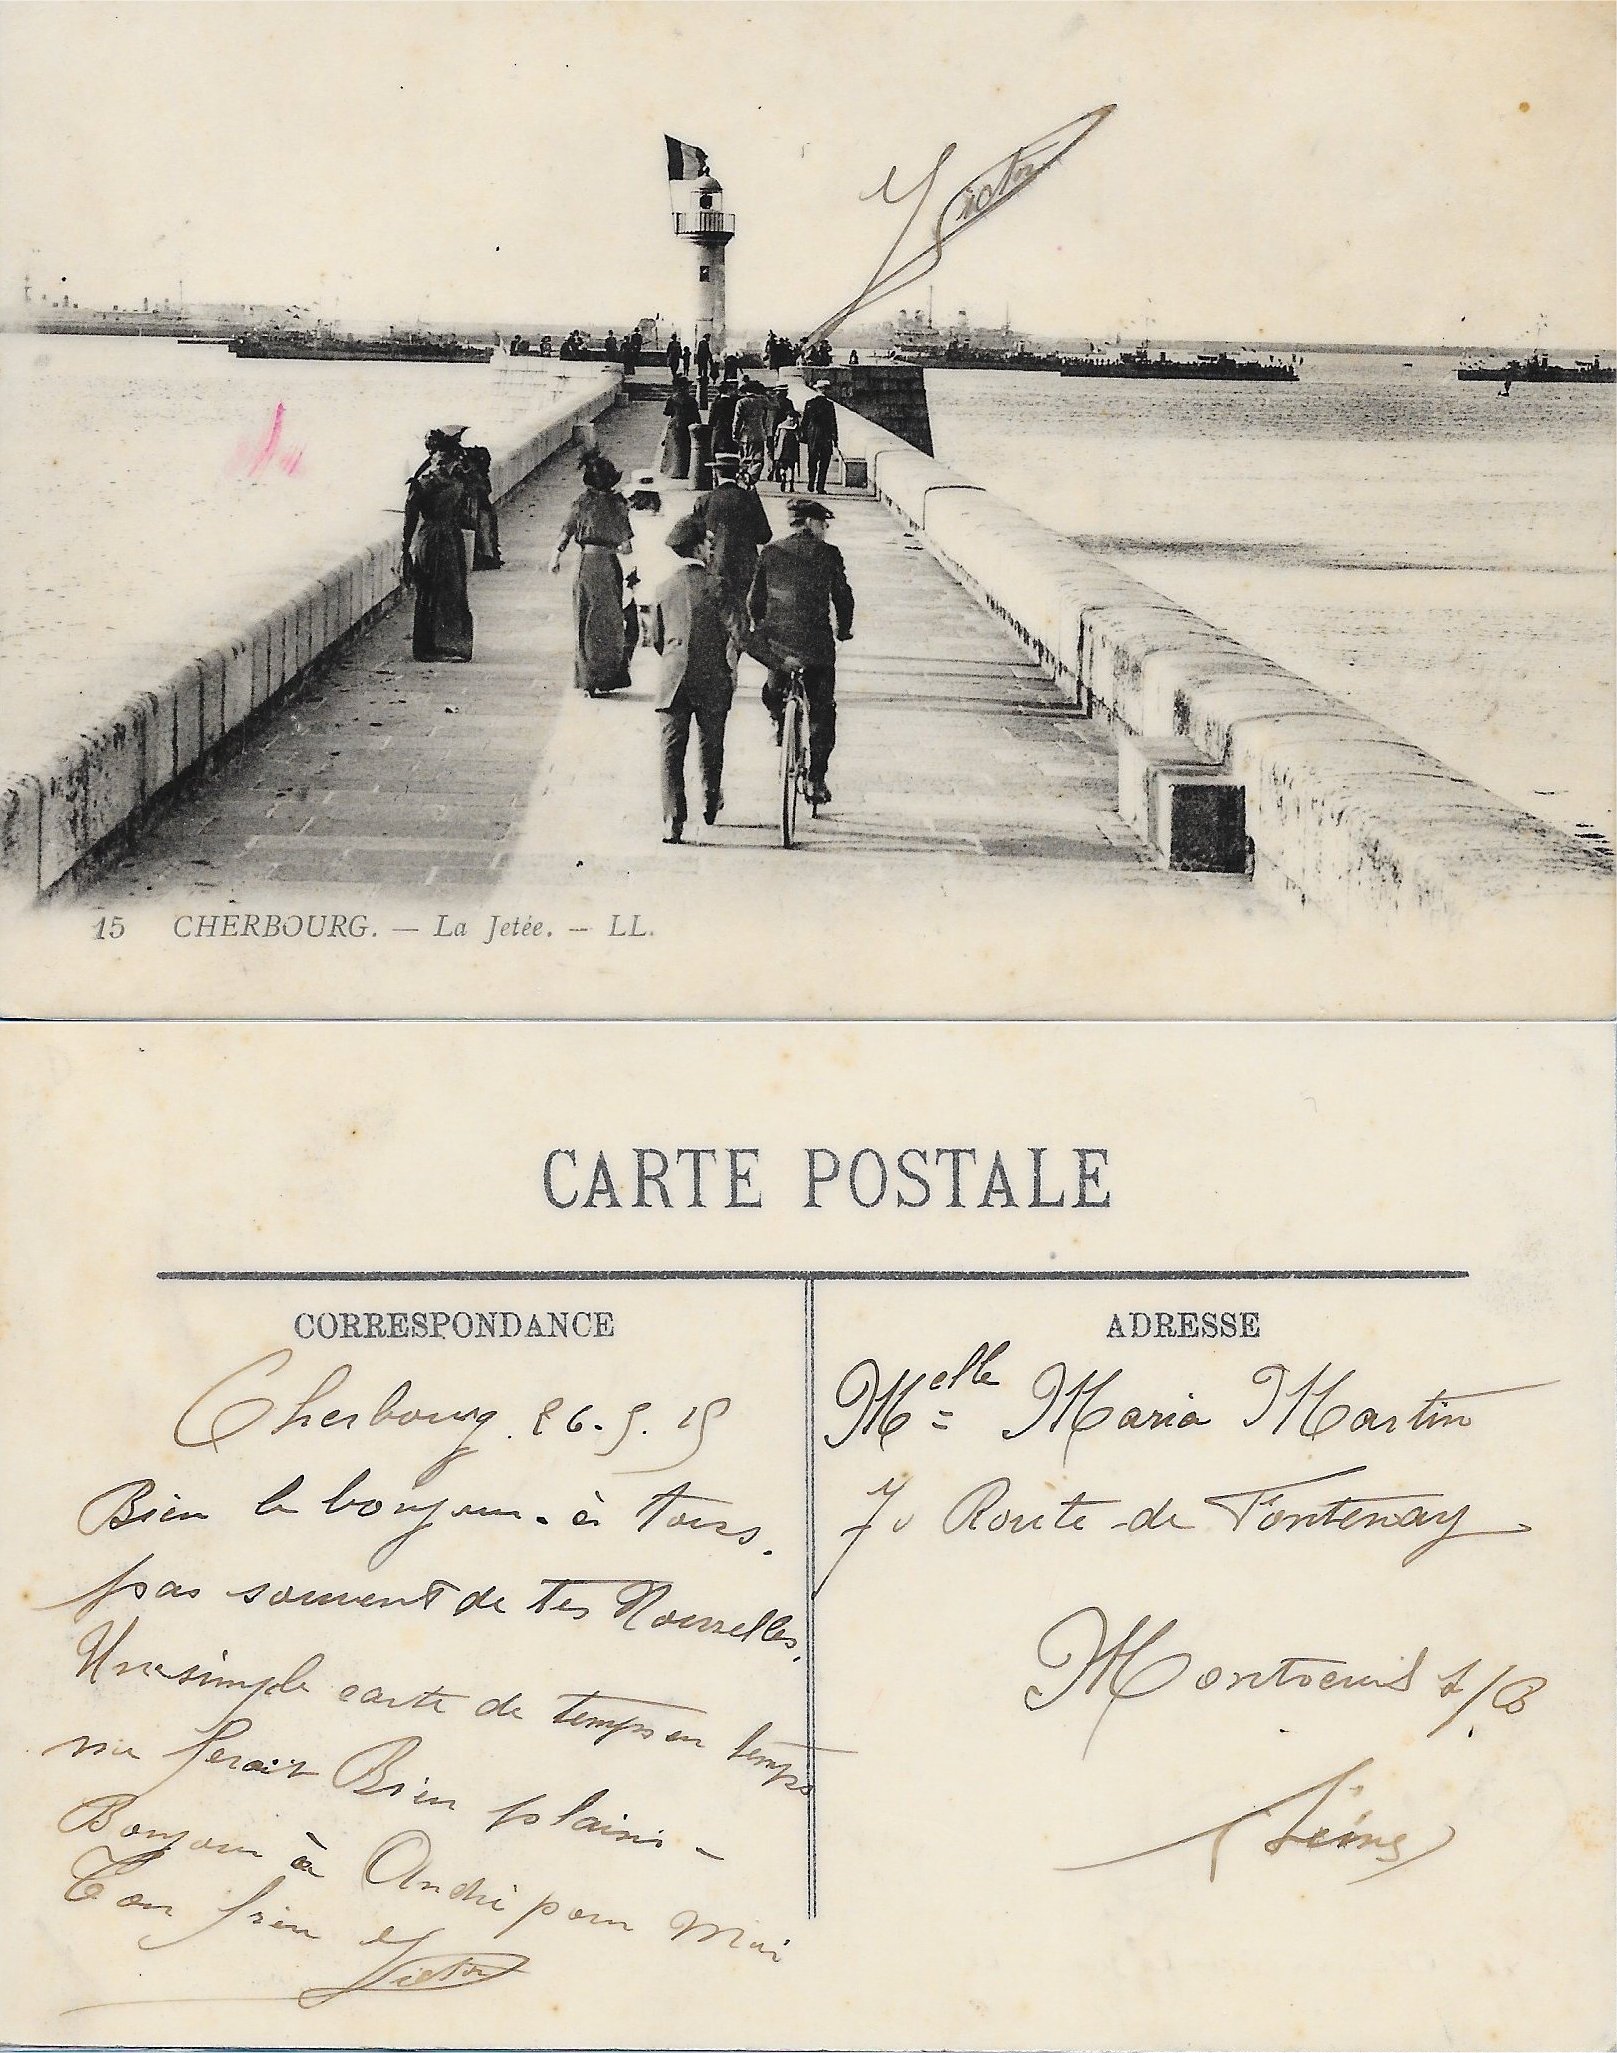 Victor
15 CHERBOURG. — La Jetée. — LL.
CARTE POSTALE
CORRESPONDANCE
Cherbourg. 26.5.15
Bien le bonjour à tous.
pas souvent de tes Nouvelles.
Une simple carte de temps en temps
me ferait Bien plaisir –
Bonjour à André pour Moi
Ton frère Victor
ADRESSE
Melle Maria Martin
70 Route de Fontenay
Montreuil s/B
Seine